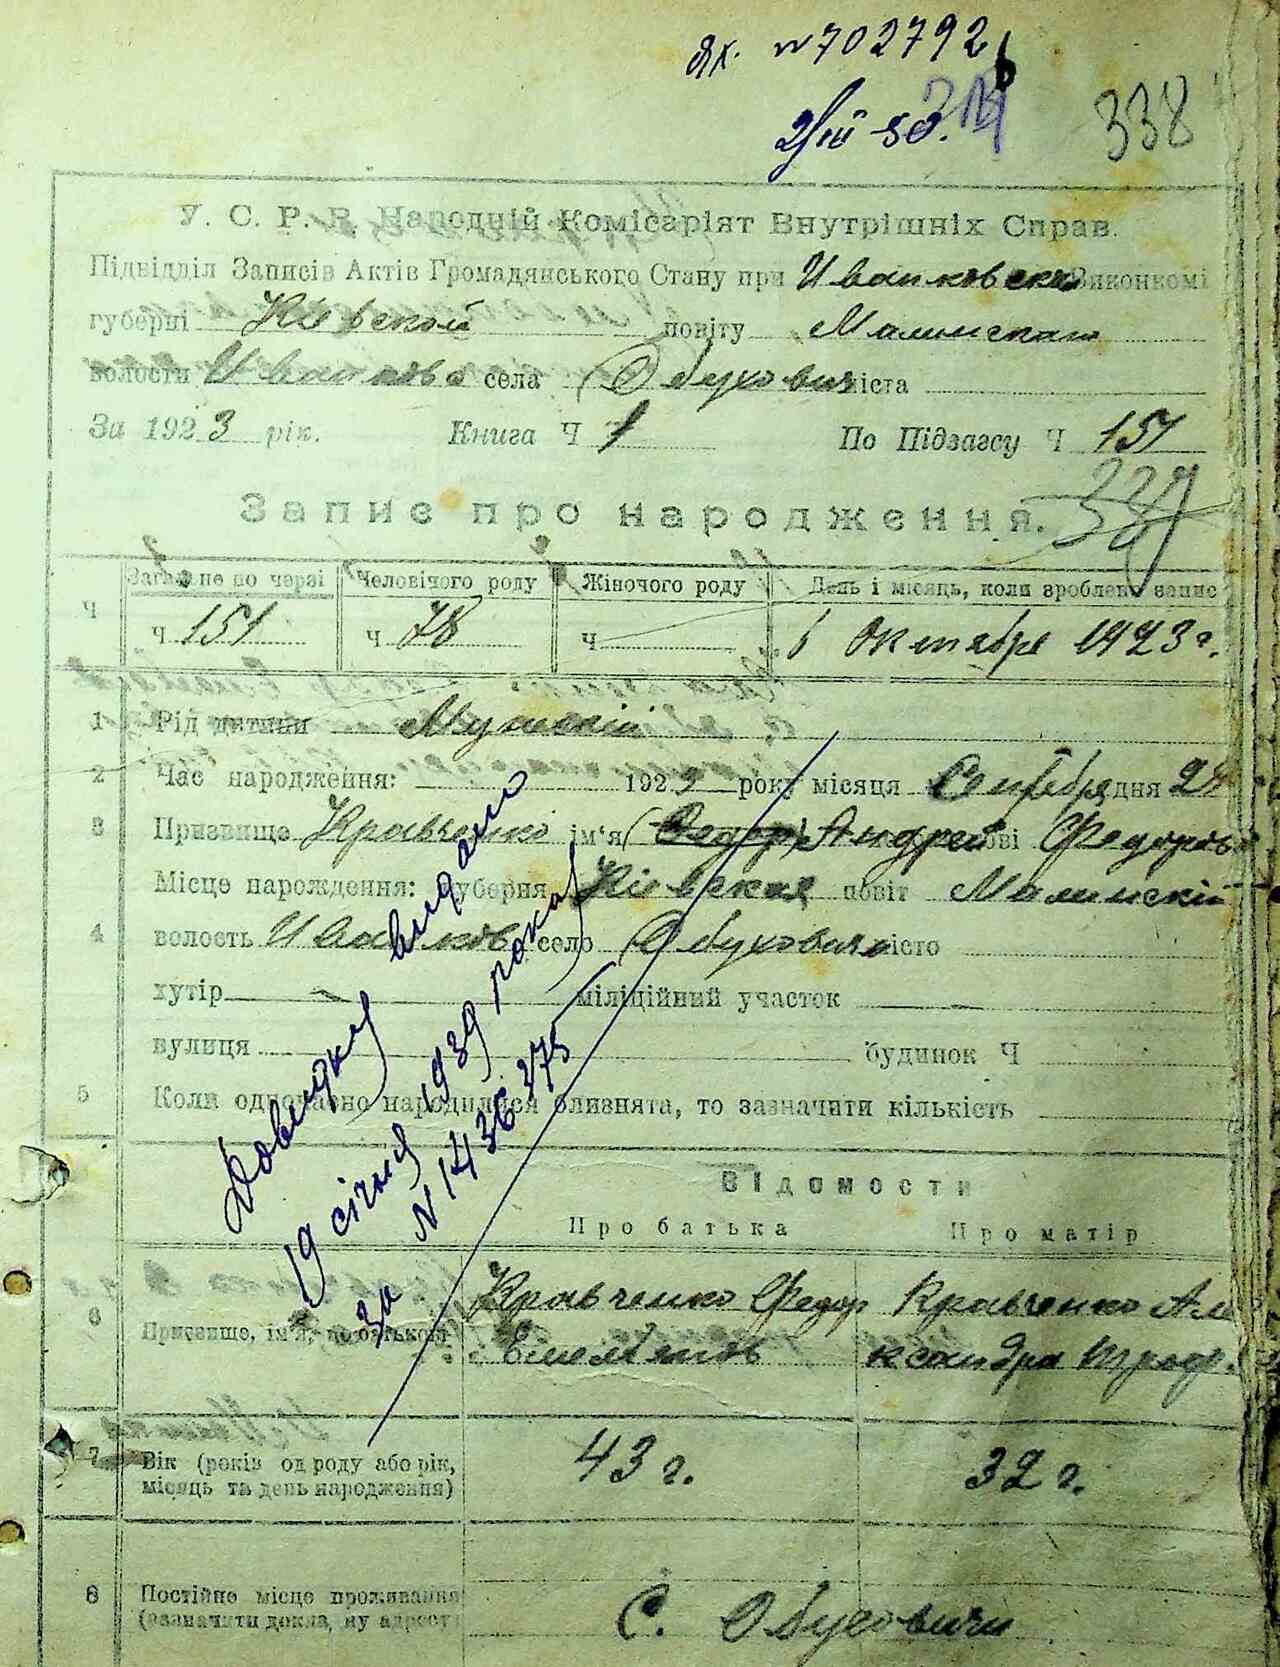 вх. N 702792
338
У. С. Р. Р. Народній Комісаріят Внутрішніх Справ.
Підвідділ Записів Актів Громадянського Стану при Иванковском Виконкомі
губерні Кіевской повіту Малинскаго
волости Иванково села Обуховичи міста
За 1923 рік. Книга Ч 1 По Підзагсу Ч 151
337
Запис про народження.
Ч Загальне по черзі Человічого роду Жіночого роду День і місяць, коли зроблено запис
ч 151 ч 78 ч 6 Октября 1923 г.
1 Рід дитини Мужскій
2 Час народження: 1923 року місяця Сентебря дня 24
3 Призвище Кравченко ім'я (Федор) Андрей Федоров
Місце народження: губерня Кіевская повіт Малинскій
4 волость Иванков село Обуховичи місто
хутір міліційний участок
вулиця будинок Ч
5 Коли одночасно народилися близнята, то зазначити кількість
Довидку видано
19 січня 1939 рока
за N 1436375
Відомости
Про батька Про матір
6 Призвище, ім'я, по батькові Кравченко Федор Кравченко Але
Емельянов ксандра Трофр.
7 Вік (років од роду або рік, 43 г. 32 г.
місяць та день народження)
8 Постійне місце проживання С. Обуховичи
(зазначити докладну адресу)